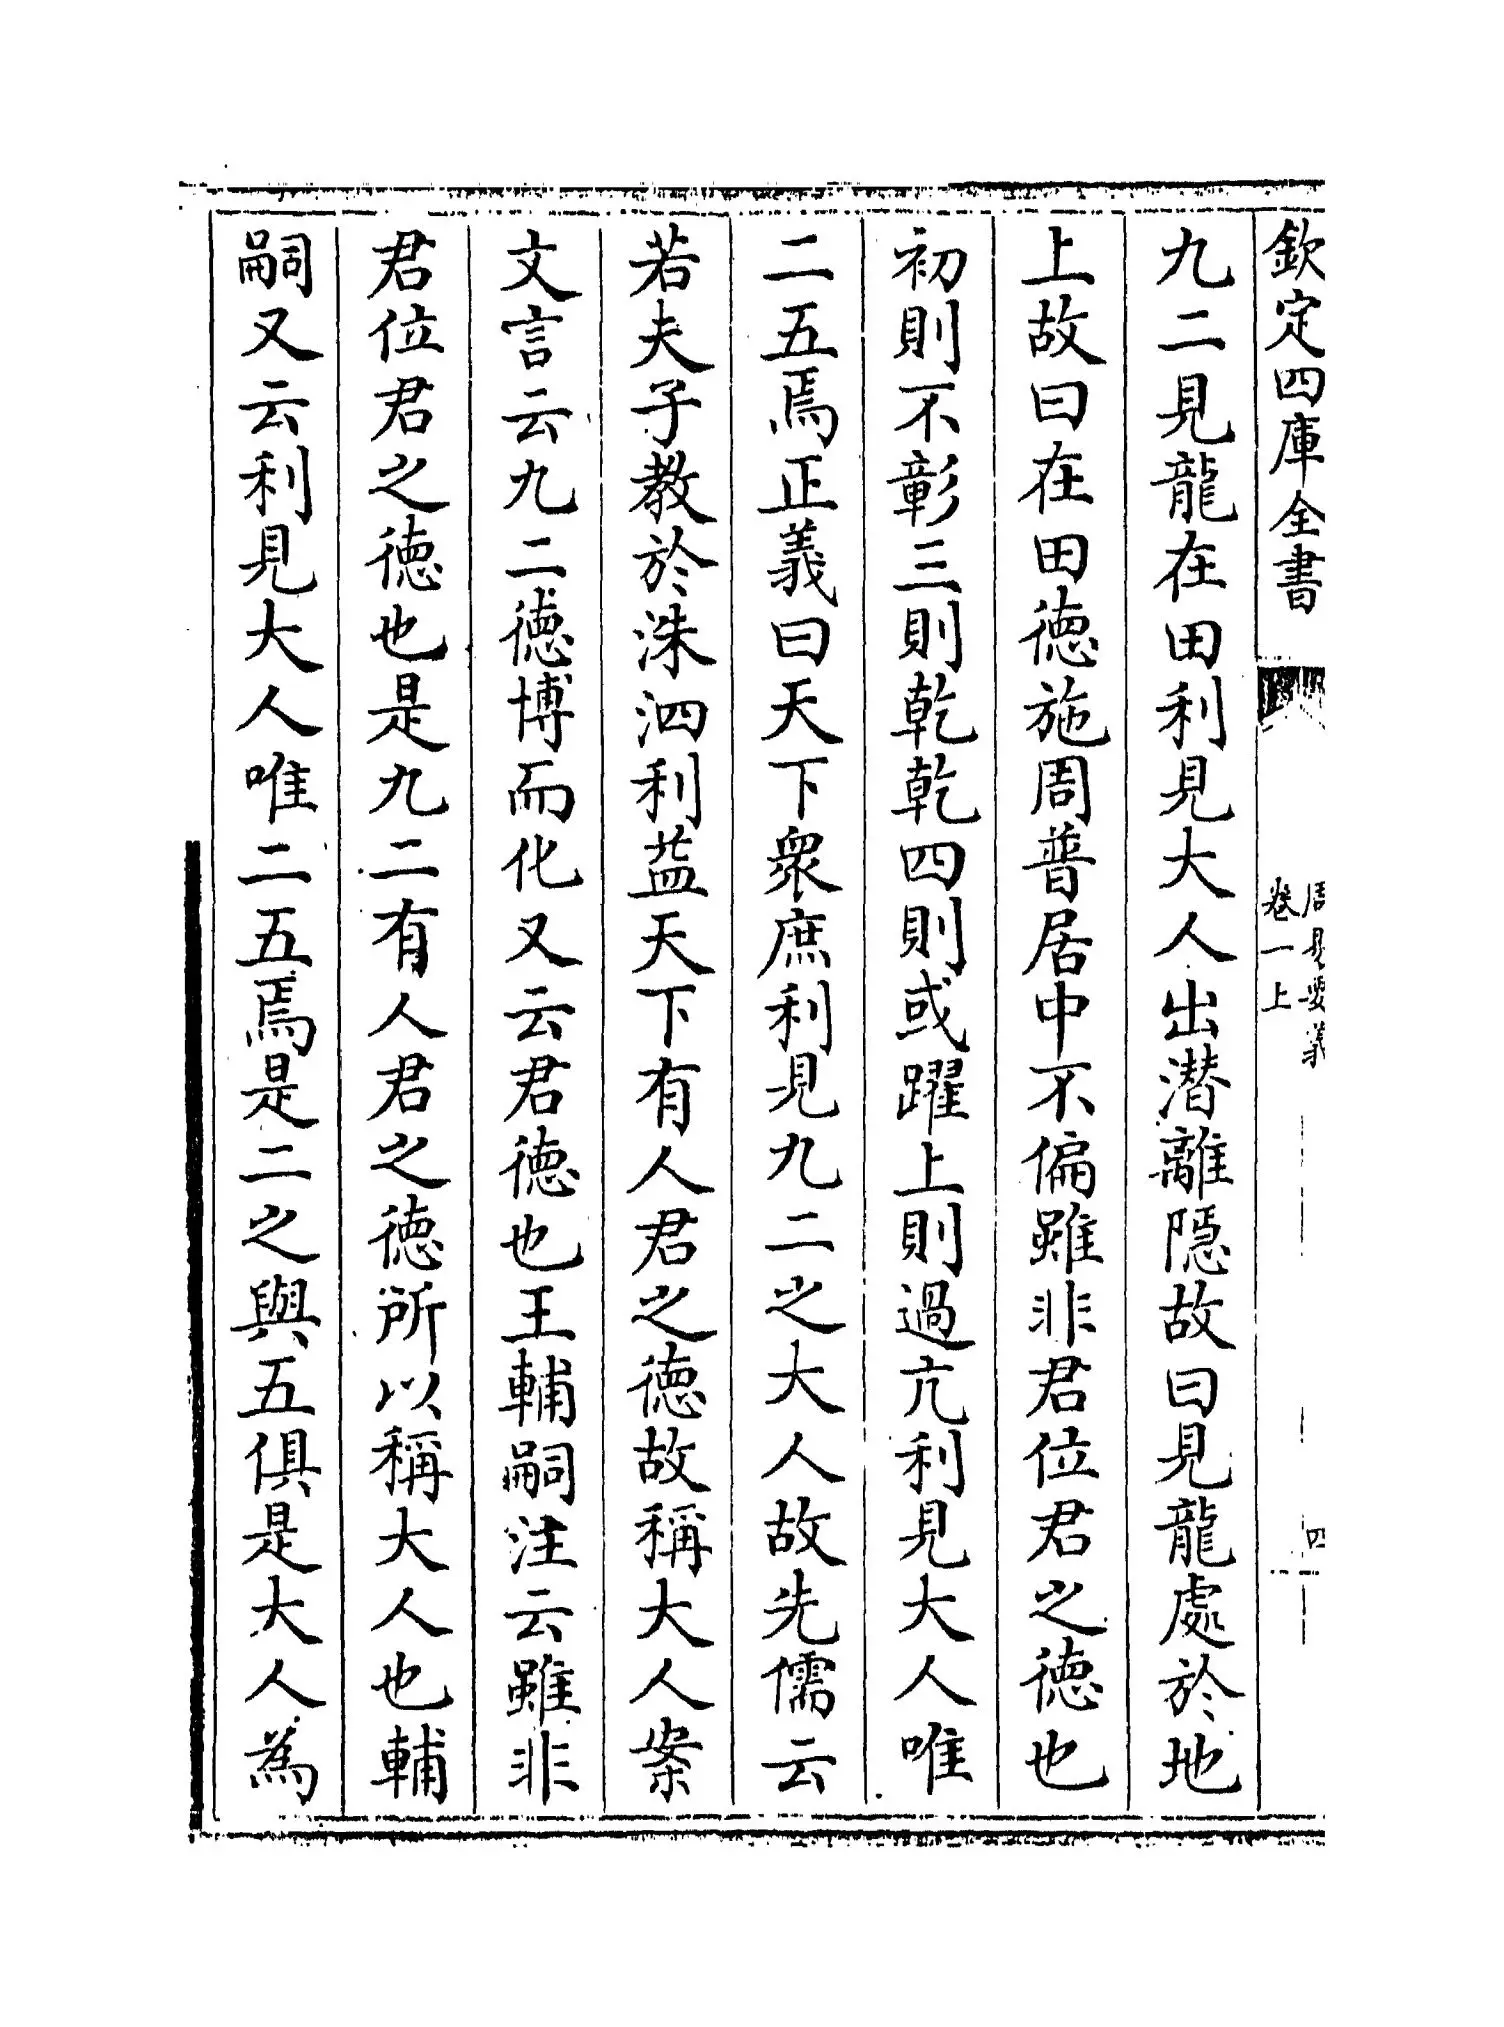 欽定四庫全書
周易要義
卷一上
四
九二見龍在田利見大人出潛離隱故曰見龍處於地
上故曰在田德施周普居中不偏雖非君位君之德也
初則不彰三則乾乾四則或躍上則過亢利見大人唯
二五焉正義曰天下衆庶利見九二之大人故先儒云
若夫子教於洙泗利益天下有人君之德故稱大人案
文言云九二德博而化又云君德也王輔嗣注云雖非
君位君之德也是九二有人君之德所以稱大人也輔
嗣又云利見大人唯二五焉是二之與五俱是大人為